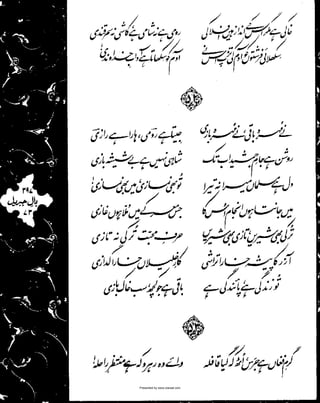 خاکی ہے مگر اس کے انداز ہیں افلاکی رومی ہے نہ شامی ہے کاشی نہ سمرقندی
سکھلائی فرشتوں کو آدم کی تڑپ اس نے آدم کو سکھاتا ہے آداب خداوندی
نے مہرہ باقی نے مہرہ بازی جیتا ہے رومی ہارا ہے رازی
روشن ہے جام جمشید اب تک شاہی نہیں ہے بے شیشہ بازی
دل ہے مسلماں میرا نہ تیرا تو بھی نمازی میں بھی نمازی
میں جانتا ہوں انجام اس کا جس معرکے میں ملا ہوں غازی
ترکی بھی شیریں تازی بھی شیریں حرف محبت ترکی نہ تازی
آزر کا پیشہ خارا تراشی کار خلیلاں خارا گدازی
تو زندگی ہے پائندگی ہے باقی ہے جو کچھ سب خاک بازی
گرم فغاں ہے جرس اٹھ کہ گیا قافلہ وائے وہ رہرو کہ ہے منتظر راحلہ!
۳۹۴
بال جبریل
۷۳